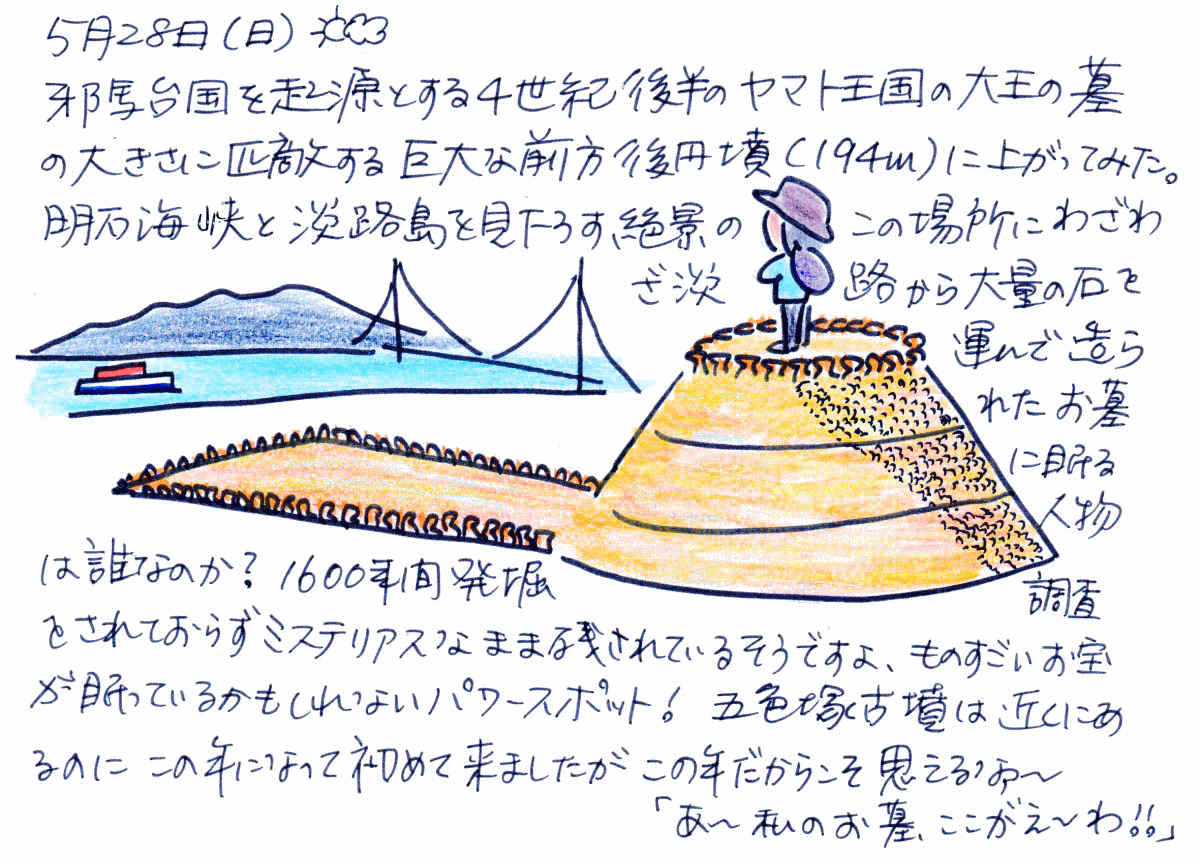 5月28日(日)
邪馬台国を起源とする4世紀後半のヤマト王国の大王の墓
の大きさに匹敵する巨大な前方後円墳(194m)に上がってみた。
明石海峡と淡路島を見下ろす、絶景の この場所にわざわ
ざ淡 路から大量の石を
運んで造ら
れたお墓
に眠る
人物
は誰なのか?1600年間発掘 調査
をされておらずミステリアスなまま残されているそうですよ、ものすごいお宝
が眠っているかもしれないパワースポット!五色塚古墳は近くにあ
るのにこの年になって初めて来ましたがこの年だからこそ思えるなァ〜
「あ〜私のお墓、ここがえ〜わ!!」